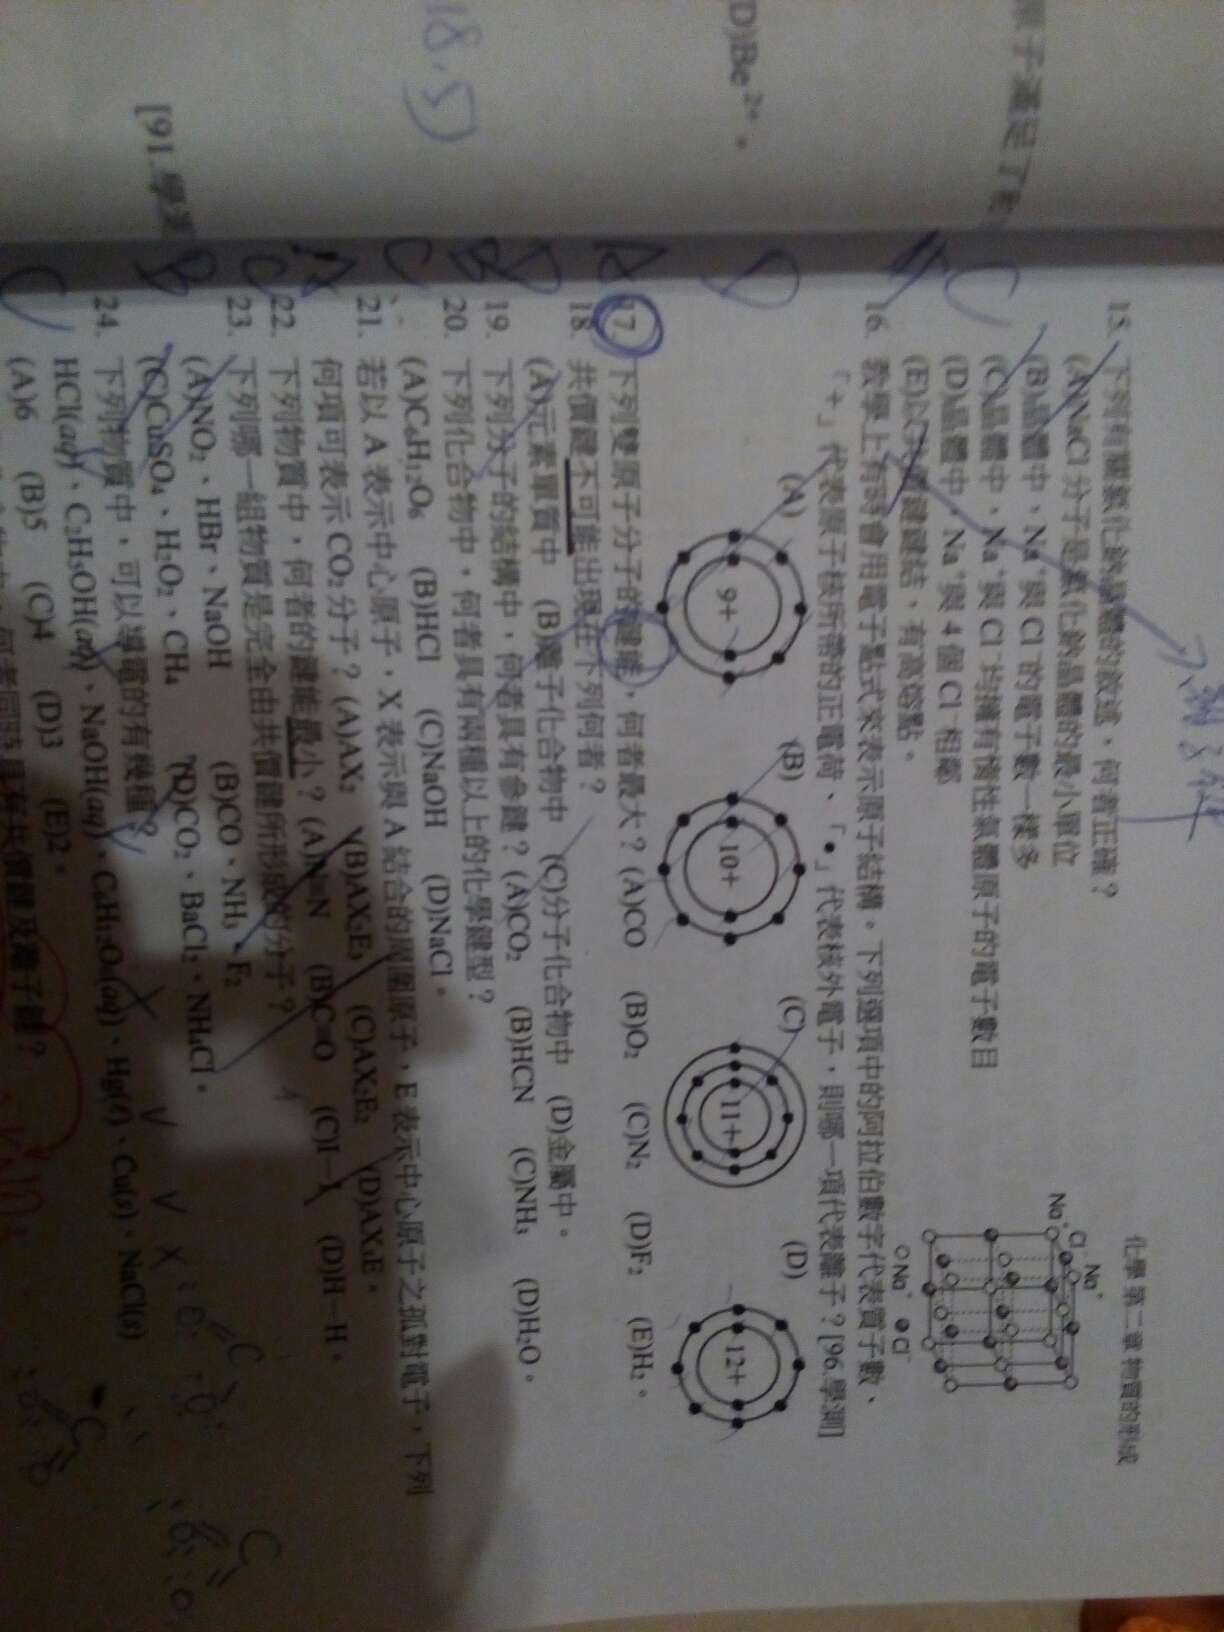 原子滿足了
(D)Be²⁺。
18.5)
[91.學測
化學 第二章 物質的形成
15. 下列有關氯化鈉晶體的敘述，何者正確？
(A)NaCl 分子是氯化鈉晶體的最小單位
(B)晶體中，Na⁺與 Cl⁻的電子數一樣多
(C)晶體中，Na⁺與 Cl⁻均擁有惰性氣體原子的電子數目
(D)晶體中，Na⁺與 4 個 Cl⁻相鄰
(E)以共價鍵鍵結，有高熔點。
Na⁺
Cl⁻
Na⁺
○Na⁺ ●Cl⁻
C
16. 教學上有時會用電子點式來表示原子結構。下列選項中的阿拉伯數字代表質子數、
「+」代表原子核所帶的正電荷、「•」代表核外電子，則哪一項代表離子？[96.學測]
(A) (B) (C) (D)
9+ 10+ 11+ 12+
D
17. 下列雙原子分子的鍵能，何者最大？(A)CO (B)O₂ (C)N₂ (D)F₂ (E)H₂。
A
18. 共價鍵不可能出現在下列何者？
(A)元素單質中 (B)離子化合物中 (C)分子化合物中 (D)金屬中。
D
19. 下列分子的結構中，何者具有參鍵？(A)CO₂ (B)HCN (C)NH₃ (D)H₂O。
B
20. 下列化合物中，何者具有兩種以上的化學鍵型？
(A)C₆H₁₂O₆ (B)HCl (C)NaOH (D)NaCl。
C
21. 若以 A 表示中心原子，X 表示與 A 結合的周圍原子，E 表示中心原子之孤對電子，下列
何項可表示 CO₂ 分子？(A)AX₂ (B)AX₂E₃ (C)AX₂E₂ (D)AX₃E。
A
22. 下列物質中，何者的鍵能最小？(A)N≡N (B)C≡O (C)I－I (D)H－H。
C
23. 下列哪一組物質是完全由共價鍵所形成的分子？
(A)NO₂、HBr、NaOH (B)CO、NH₃、F₂
(C)CuSO₄、H₂O₂、CH₄ (D)CO₂、BaCl₂、NH₄Cl。
B
24. 下列物質中，可以導電的有幾種？
HCl(aq)、C₂H₅OH(aq)、NaOH(aq)、C₆H₁₂O₆(aq)、Hg(ℓ)、Cu(s)、NaCl(s)
(A)6 (B)5 (C)4 (D)3 (E)2。
C
何者同時具有共價鍵及離子鍵？